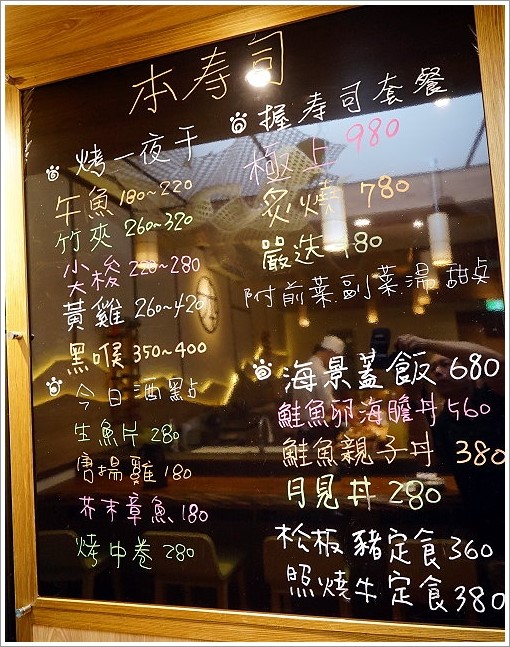 本寿司
烤一夜干
午魚 180~220
竹夾 260~320
尖梭 220~280
黃雞 260~420
黑喉 350~400
今日酒點
生魚片 280
唐揚雞 180
芥末章魚 180
烤中卷 280
握寿司套餐
極上 980
炙燒 780
嚴选 480
附前菜.副菜.湯.甜点
海景蓋飯 680
鮭魚卵海膽丼 560
鮭魚親子丼 380
月見丼 280
松板豬定食 360
照燒牛定食 380